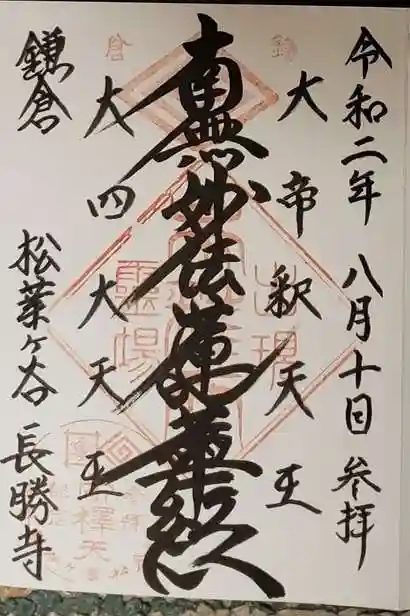 令和二年 八月十日 参拝
大帝釈天王
南無妙法蓮華経
大四大天王
鎌倉 松葉ヶ谷 長勝寺
鎌
倉
出現
靈場